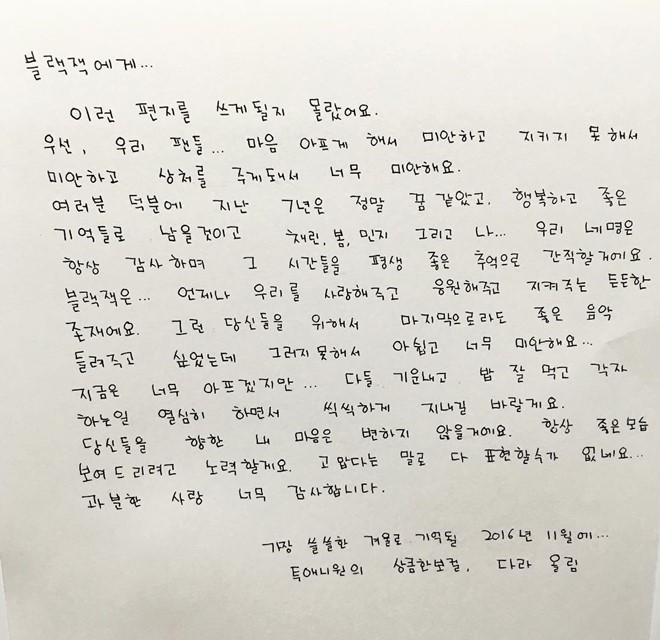 블랙잭에게...
이런 편지를 쓰게될지 몰랐어요.
우선, 우리 팬들... 마음 아프게 해서 미안하고 지키지 못해서
미안하고 상처를 주게돼서 너무 미안해요.
여러분 덕분에 지난 7년은 정말 꿈 같았고. 행복하고 좋은
기억들로 남을것이고 채린, 봄, 민지 그리고 나... 우리 네명은
항상 감사하며 그 시간들을 평생 좋은 추억으로 간직할거에요.
블랙잭은... 언제나 우리를 사랑해주고 응원해주고 지켜주는 든든한
존재에요. 그런 당신들을 위해서 마지막으로라도 좋은 음악
들려주고 싶었는데 그러지못해서 아쉽고 너무 미안해요...
지금은 너무 아프겠지만... 다들 기운내고 밥 잘 먹고 각자
하는일 열심히 하면서 씩씩하게 지내길 바랄게요.
당신들을 향한 내 마음은 변하지 않을거에요. 항상 좋은모습
보여드리려고 노력할게요. 고맙다는 말로 다 표현할수가 없네요...
과분한 사랑 너무 감사합니다.
가장 쓸쓸한 겨울로 기억될 2016년 11월에...
투애니원의 상큼한보컬, 다라 올림